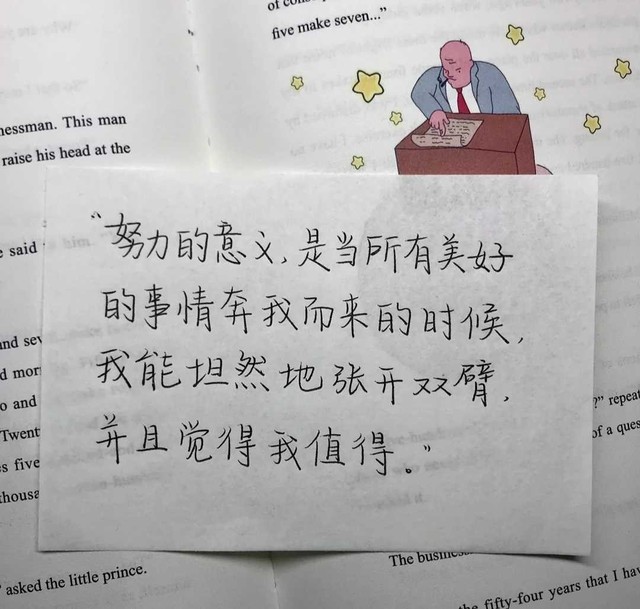 of cons
five make seven..."
nessman. This man
raise his head at the
said
"努力的意义,是当所有美好
的事情奔我而来的时候,
我能坦然地张开双臂,
并且觉得我值得。"
and sev
d mor
o and
Twent
s five
thousa
" asked the little prince.
?" repeat
of a ques
The busines
the fifty-four years that I hav